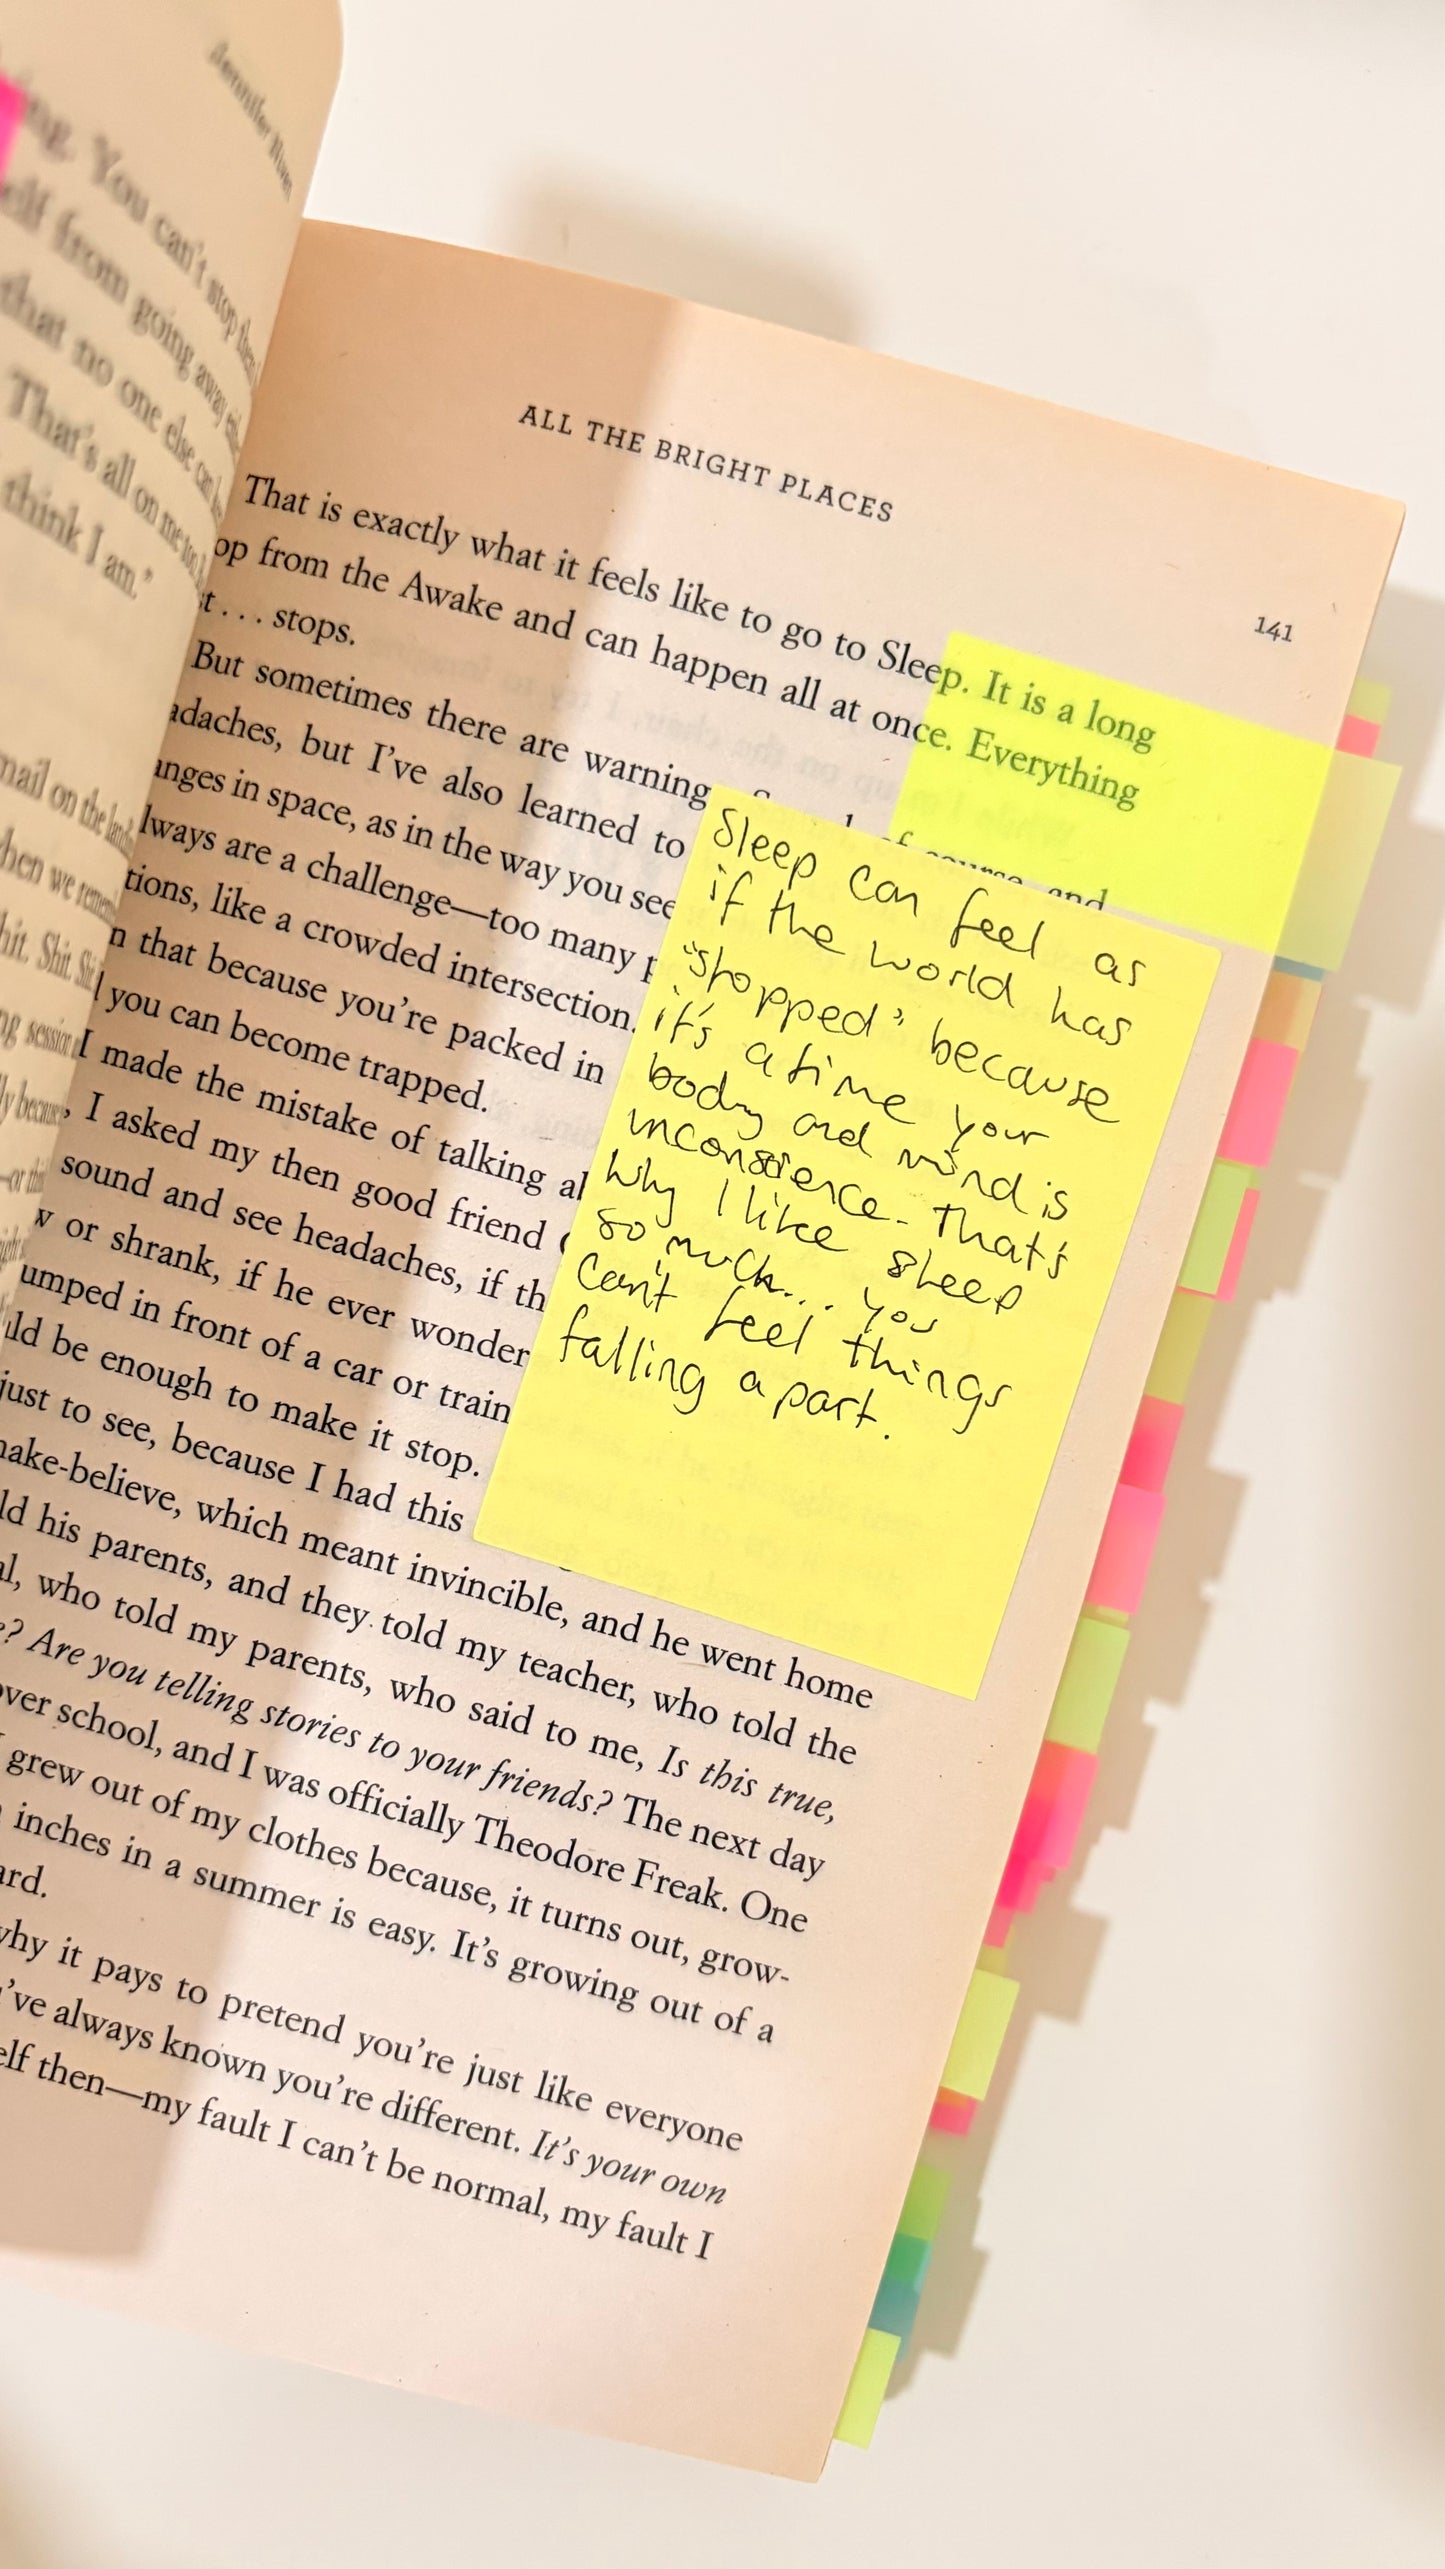 Jennifer Niven
You can't stop
elf from going away
that no one else can
That's all on me
think I am."
mail on the
when we
Shit.
ALL THE BRIGHT PLACES
141
That is exactly what it feels like to go to Sleep. It is a long
op from the Awake and can happen all at once. Everything
t . . . stops.
But sometimes there are warning of course, and
adaches, but I've also learned to
anges in space, as in the way you see
lways are a challenge—too many p
tions, like a crowded intersection.
n that because you're packed in
l you can become trapped.
I made the mistake of talking al
, I asked my then good friend
sound and see headaches, if th
w or shrank, if he ever wonder
umped in front of a car or train
ld be enough to make it stop.
just to see, because I had this
nake-believe, which meant invincible, and he went home
ld his parents, and they told my teacher, who told the
al, who told my parents, who said to me, Is this true,
e? Are you telling stories to your friends? The next day
over school, and I was officially Theodore Freak. One
I grew out of my clothes because, it turns out, grow-
inches in a summer is easy. It's growing out of a
ard.
why it pays to pretend you're just like everyone
've always known you're different. It's your own
elf then—my fault I can't be normal, my fault I
Sleep can feel as
if the world has
"stopped" because
it's a time your
body and mind is
inconscience. That's
why I like sleep
so much... you
can't feel things
falling apart.